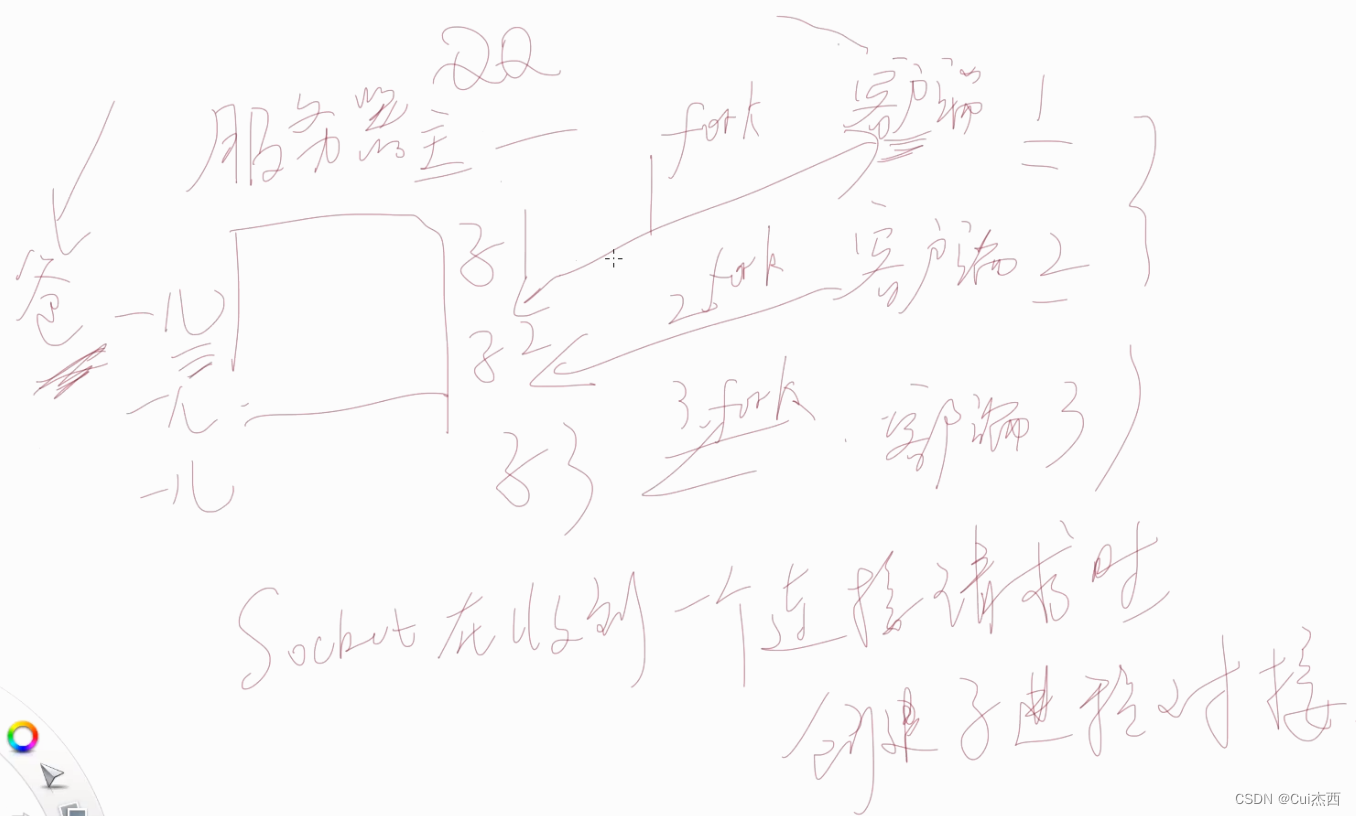 QQ
服务器主
fork
客户端1
子1
2 fork
客户端2
爸
一儿
子2
一儿
3 fork
客户端3
一儿
子3
Socket在收到一个连接请求时
创建子进程对接
CSDN @Cui杰西